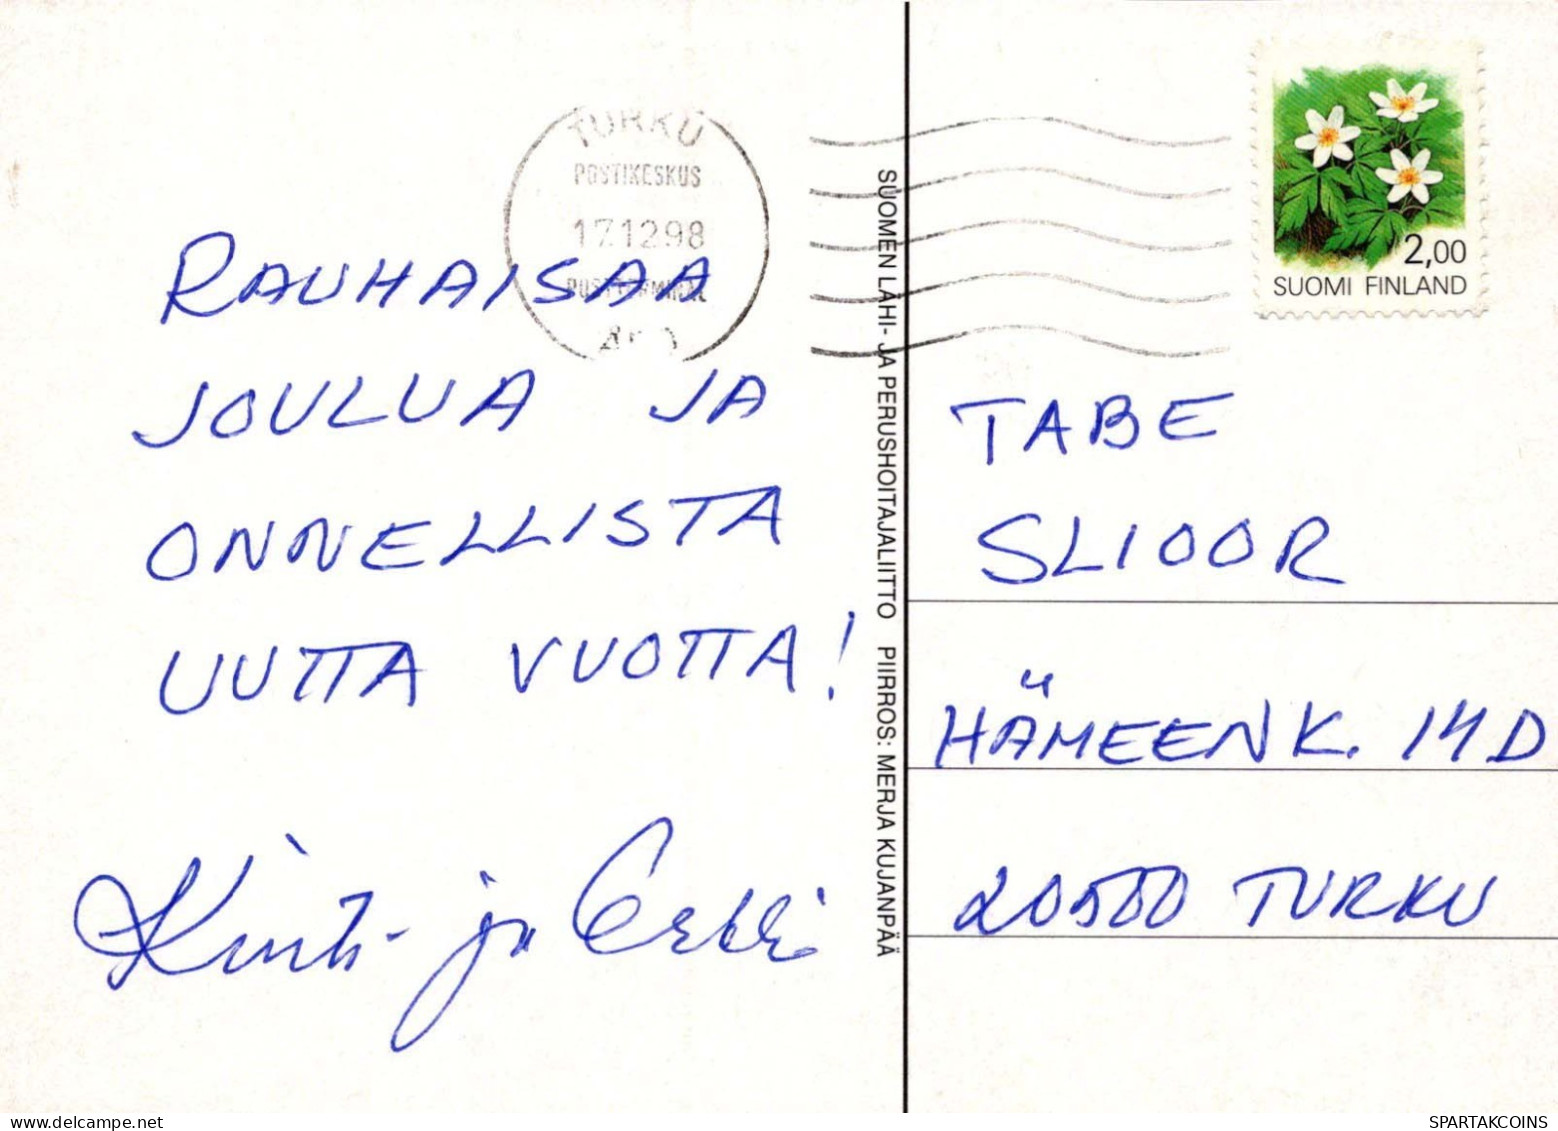 TURKU
POSTIKESKUS
17.12.98
RAUHAISAA
JOULUA JA
ONNELLISTA
UUTTA VUOTTA!
ja Erkki
SUOMEN LÄHI- JA PERUSHOITAJALIITTO PIIRROS: MERJA KUJANPÄÄ
2,00
SUOMI FINLAND
TABE
SLIOOR
HÄMEENK. 14 D
20500 TURKU
www.delcampe.net
SPARTAKCOINS